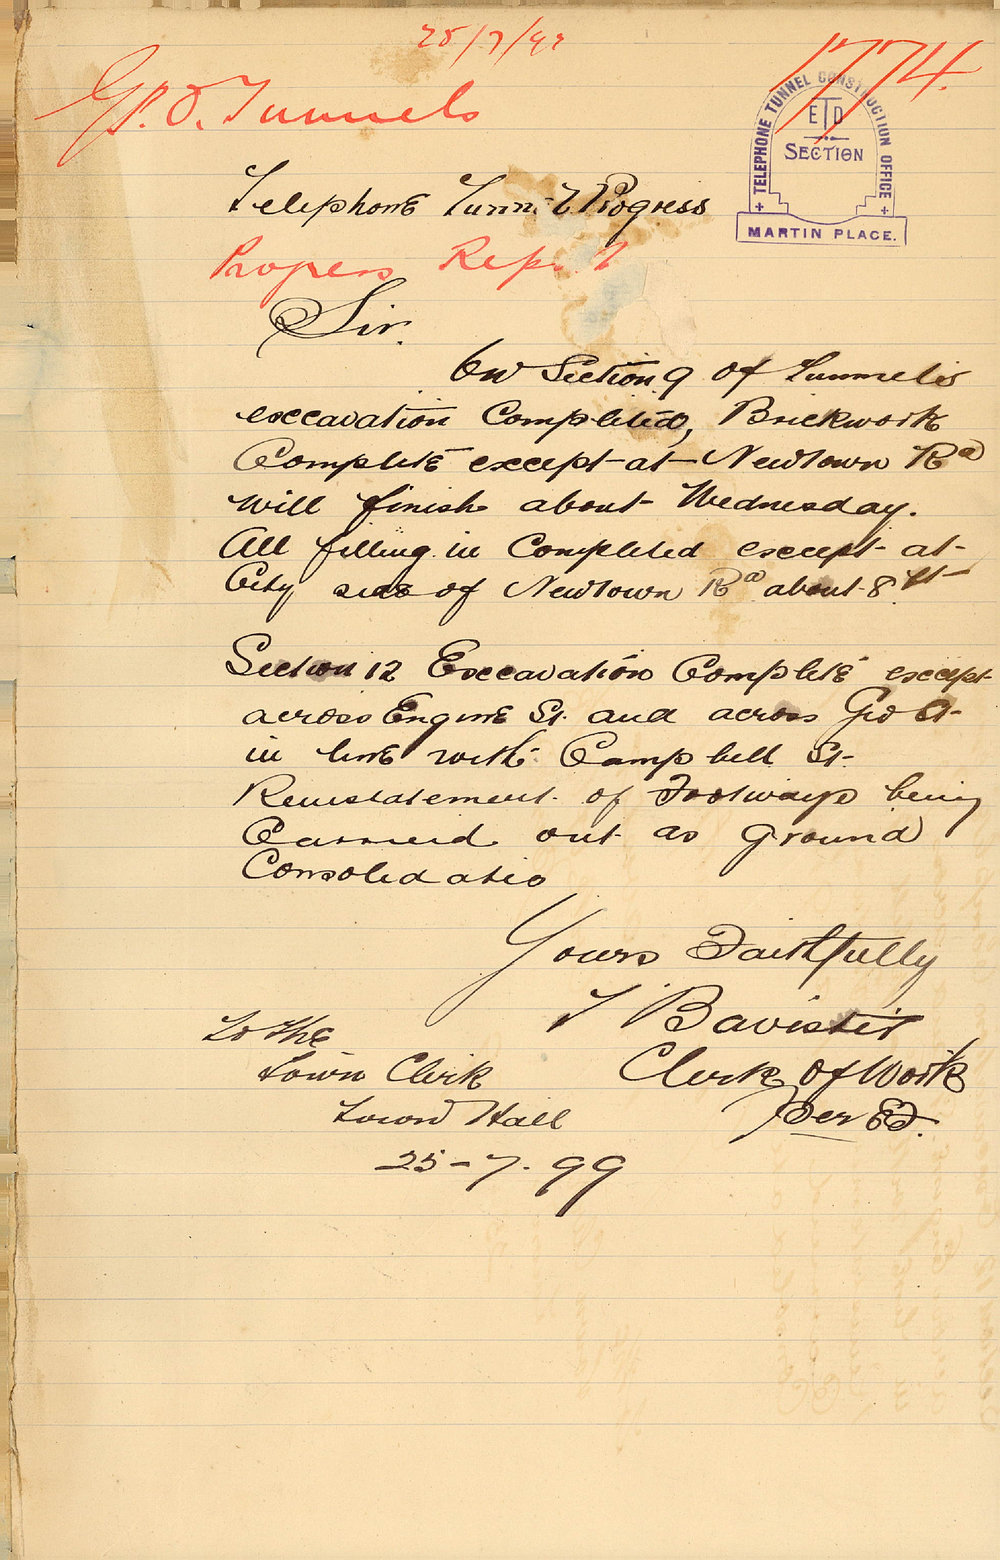 25/7/99
1774.
G.P.O. Tunnels
TELEPHONE TUNNEL CONSTRUCTION OFFICE
ETD
SECTION
MARTIN PLACE.
Telephone Tunnel Progress
Progress Rep.
Sir.
On Section 9 of Tunnels
excavation Completed, Brickwork
Complete except at Newtown Rd
will finish about Wednesday.
All filling in Completed except at
City side of Newtown Rd about 8 ft
Section 12 Excavation Complete except
across Engine St. and across Geo St
in line with Campbell St.
Reinstatement of Footways being
Carried out as ground
Consoledates
Yours Faithfully
T Bavister
Clerk of Work
Per
To the
Town Clerk
Town Hall
25-7.99